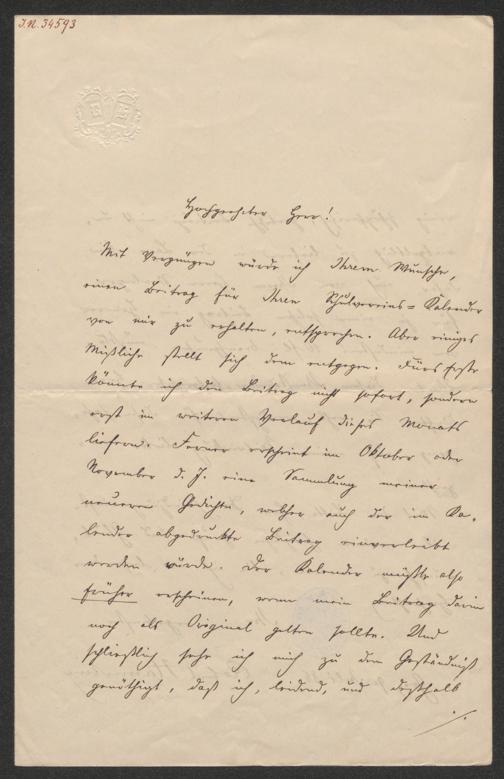 I.N. 34593
Hochgeehrter Herr!
Mit Vergnügen würde ich Ihrem Wunsche,
einen Beitrag für Ihren Schulvereins=Kalender
von mir zu erhalten, entsprechen. Aber einiges
Mißliche stellt sich dem entgegen. Fürs erste
könnte ich den Beitrag nicht sofort, sondern
erst im weiteren Verlauf dieses Monats
liefern. Ferner erscheint im Oktober oder
November d. J. eine Sammlung meiner
neueren Gedichte, welcher auch der im Ka-
lender abgedruckte Beitrag einverleibt
werden würde. Der Kalender müßte also
früher erscheinen, wenn mein Beitrag darin
noch als Original gelten sollte. Und
schließlich sehe ich mich zu dem Geständniß
genöthigt, daß ich, leidend, und deßhalb
./.